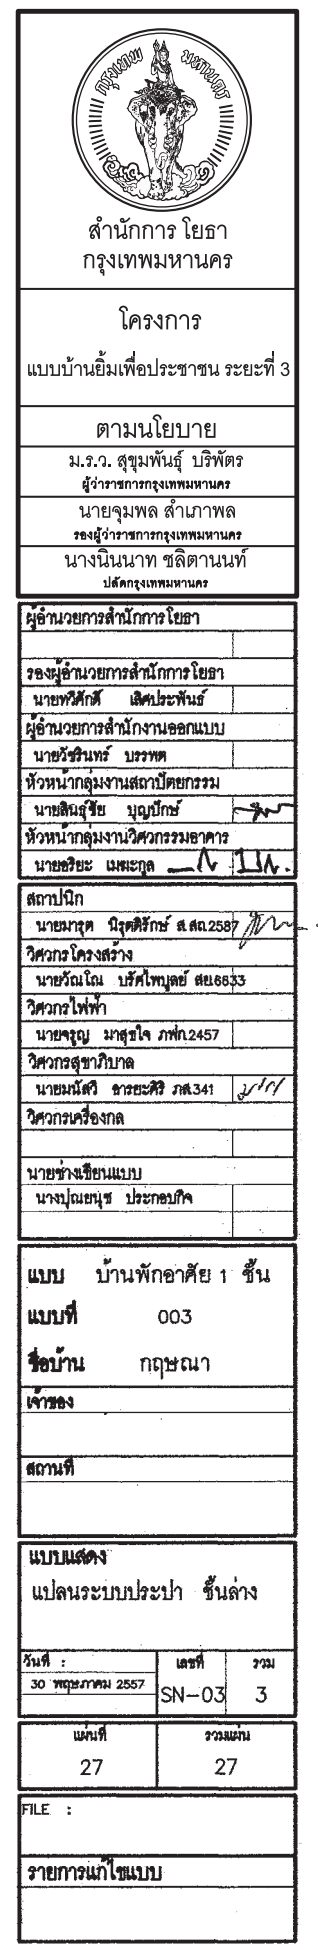 กรุงเทพ มหานคร
สำนักการโยธา
กรุงเทพมหานคร
โครงการ
แบบบ้านยิ้มเพื่อประชาชน ระยะที่ 3
ตามนโยบาย
ม.ร.ว. สุขุมพันธุ์ บริพัตร
ผู้ว่าราชการกรุงเทพมหานคร
นายจุมพล สำเภาพล
รองผู้ว่าราชการกรุงเทพมหานคร
นางนินนาท ชลิตานนท์
ปลัดกรุงเทพมหานคร
ผู้อำนวยการสำนักการโยธา
รองผู้อำนวยการสำนักการโยธา
นายทวีศักดิ์ เลิศประพันธ์
ผู้อำนวยการสำนักงานออกแบบ
นายวัชรินทร์ บรรพต
หัวหน้ากลุ่มงานสถาปัตยกรรม
นายสินธุ์ชัย บุญปักษ์
หัวหน้ากลุ่มงานวิศวกรรมอาคาร
นายอริยะ เมฆะกูล
สถาปนิก
นายมารุต นิรุตติรักษ์ ส.สถ.2587
วิศวกรโครงสร้าง
นายวัณโณ บริศไพบูลย์ สย.6633
วิศวกรไฟฟ้า
นายจรูญ มาสุขใจ ภฟก.2457
วิศวกรสุขาภิบาล
นายมนัสวี อารยะศิริ ภส.341
วิศวกรเครื่องกล
นายช่างเขียนแบบ
นางปุณยนุช ประกอบกิจ
แบบ บ้านพักอาศัย 1 ชั้น
แบบที่ 003
ชื่อบ้าน กฤษณา
เจ้าของ
สถานที่
แบบแสดง
แปลนระบบประปา ชั้นล่าง
วันที่ : เลขที่ รวม
30 พฤษภาคม 2557 SN-03 3
แผ่นที่ รวมแผ่น
27 27
FILE :
รายการแก้ไขแบบ